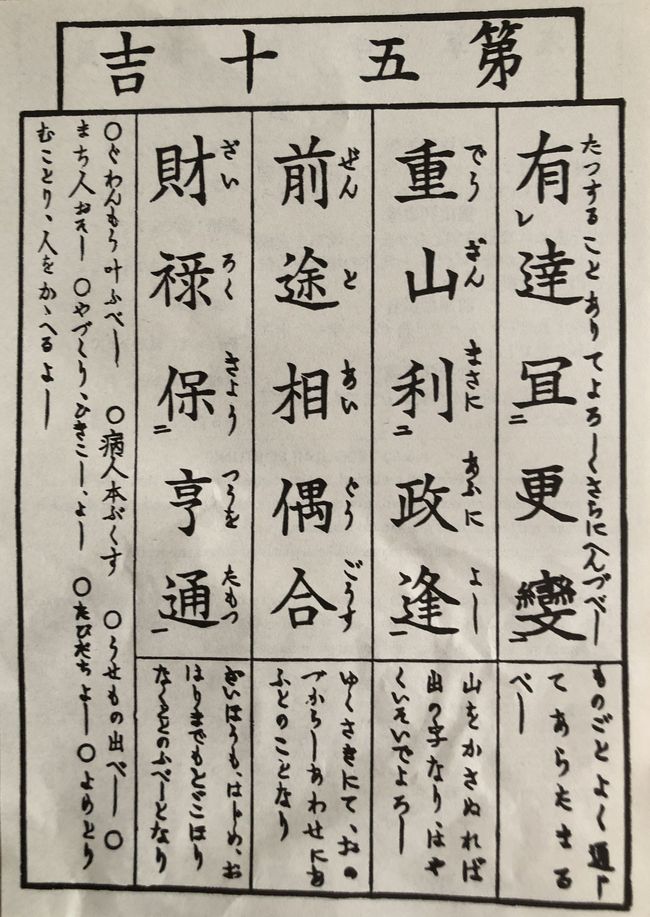 第五十吉
たつすることありてよろしくさらにへんづべし
有レ達冝二更變一
ものごとよく通じ
てあらたまる
べし
でうざんまさにあふによし
重山利二政逢一
山をかさぬれば
出の字なり、はや
くいそいでよろし
ぜんとあいぐうごうす
前途相偶合
ゆくさきにて、おの
づからしあわせにあ
ふとのことなり
ざいろくきようつうをたもつ
財禄保二亨通一
ざいほうも、はじめ、お
はりまでもとどこほり
なくととのふべしとなり
〇ぐわんもう叶ふべし 〇病人本ぶくす 〇うせもの出べし 〇
まち人おそし 〇やづくり、ひきこし、よし 〇たびだちよし 〇よめとり
むことり、人をかゝへるよし